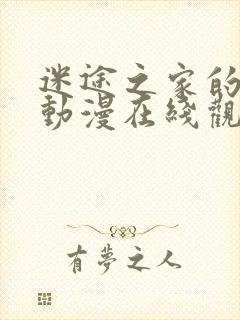 迷途之家的
動漫在綫觀
有夢之人